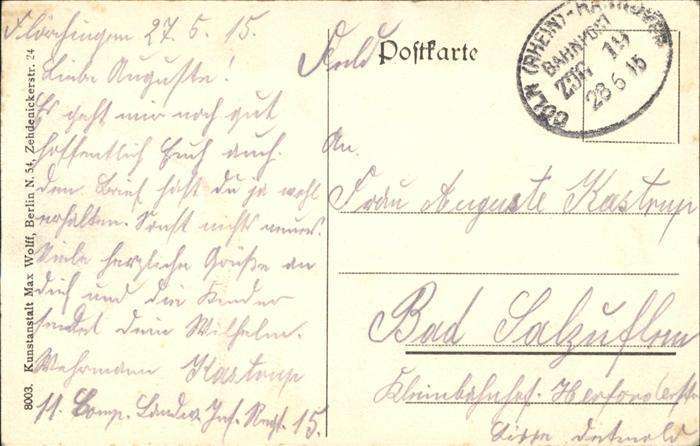 Flörchingen 27.5.15.
Liebe Auguste!
Es geht mir noch gut
hoffentlich Euch auch.
Den Brief hast du ja wohl
erhalten. Sonst nichts neues.
Viele herzliche Grüße an
dich und die Kinder
sendet dein Wilhelm.
Wehrmann Kastrup
11. Comp. Landw. Inf. Regt. 15.
8003. Kunstanstalt Max Wolff, Berlin N. 54, Zehdenickerstr. 24
Feld Postkarte
CÖLN (RHEIN)
BAHNPOST
ZUG 19
28 5 15
An.
Frau Auguste Kastrup
Bad Salzuflen
Kleinbahnhof. Herforderstr
Lippe Detmold